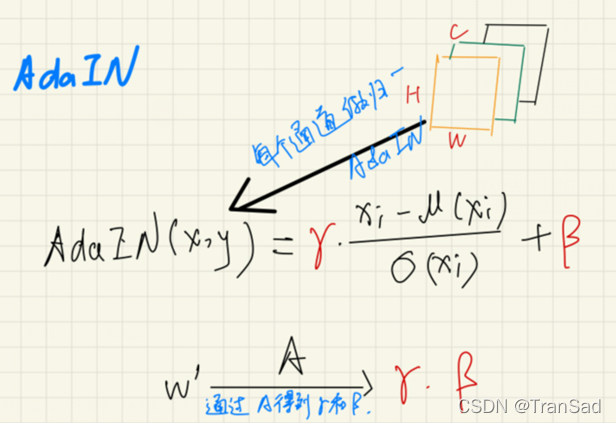 AdaIN
C
H
W
每个通道做归一
AdaIN
AdaIN(x,y) = γ · (xi - μ(xi)) / σ(xi) + β
w' A → γ. β
通过 A得到 γ和 β.
CSDN @TranSad